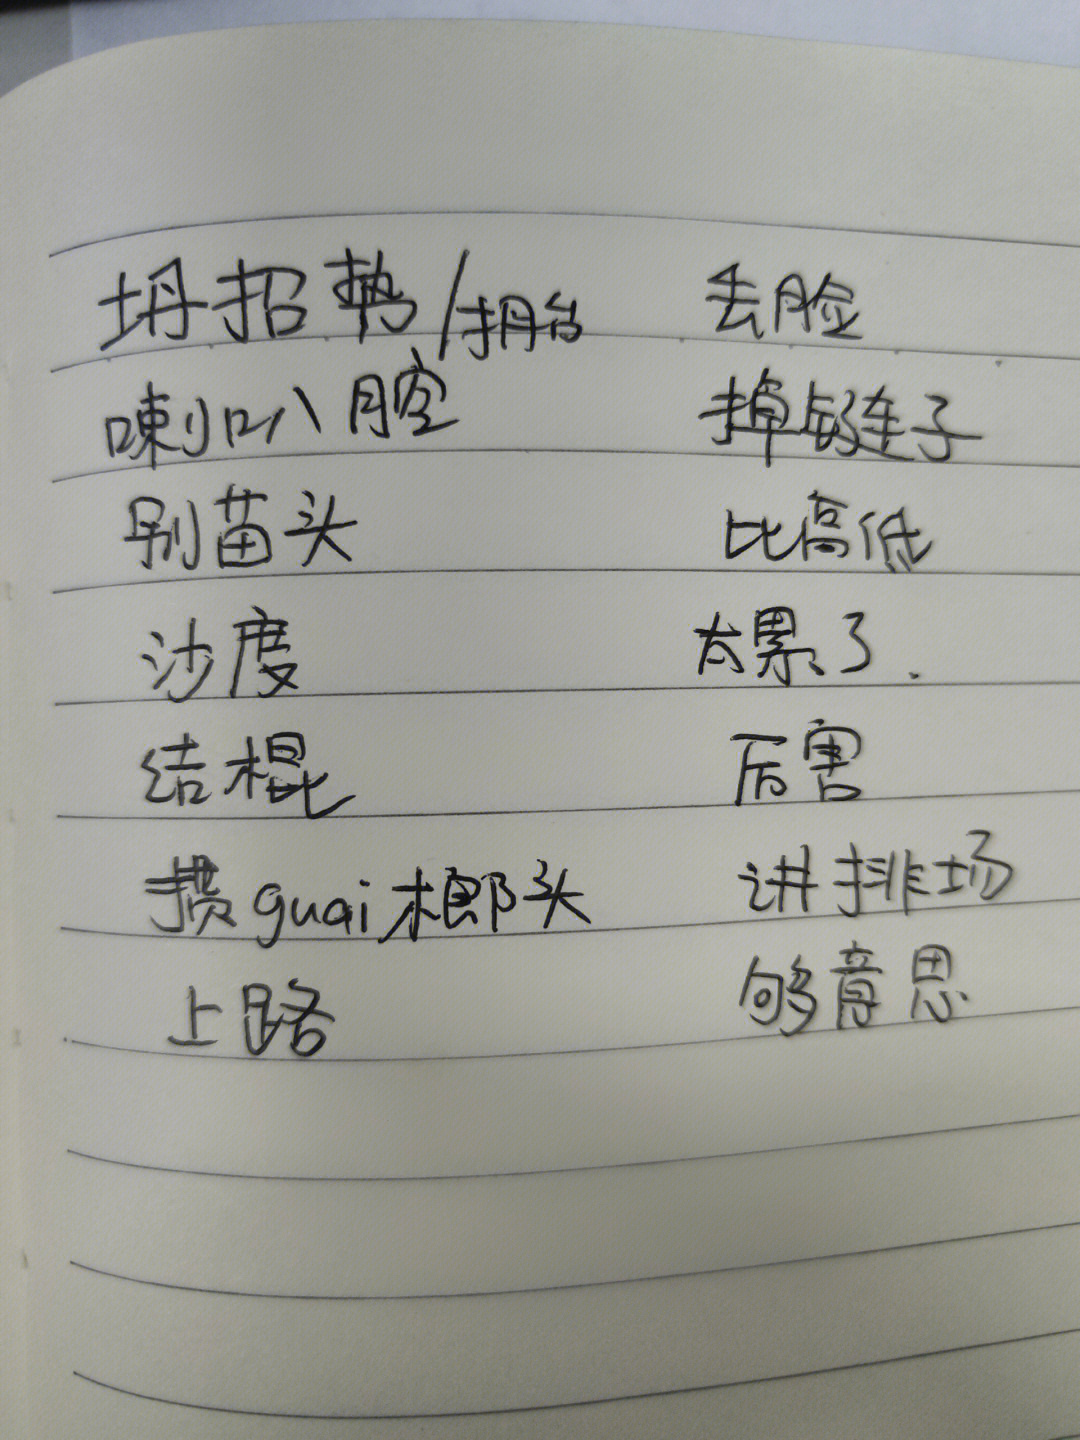 坍招势/坍台 丢脸
喇叭腔 掉链子
别苗头 比高低
沙度 太累了.
结棍 厉害
掼guai榔头 讲排场
上路 够意思